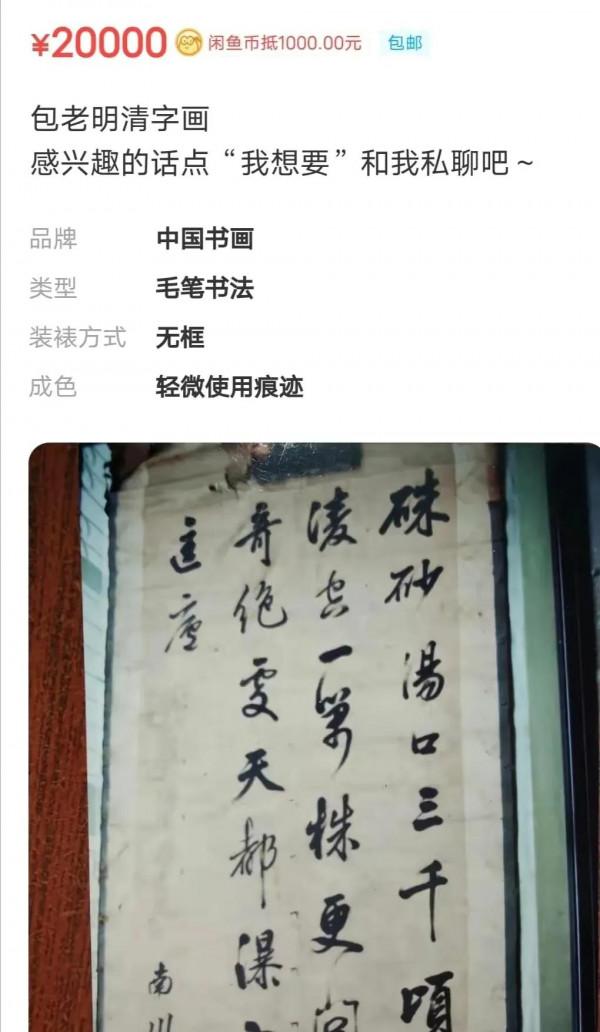 ¥20000 闲鱼币抵1000.00元 包邮
包老明清字画
感兴趣的话点“我想要”和我私聊吧～
品牌 中国书画
类型 毛笔书法
装裱方式 无框
成色 轻微使用痕迹
硃砂湯口三千頃
淩空一萬株更問
奇絕處天都瀑
匡廬
南川